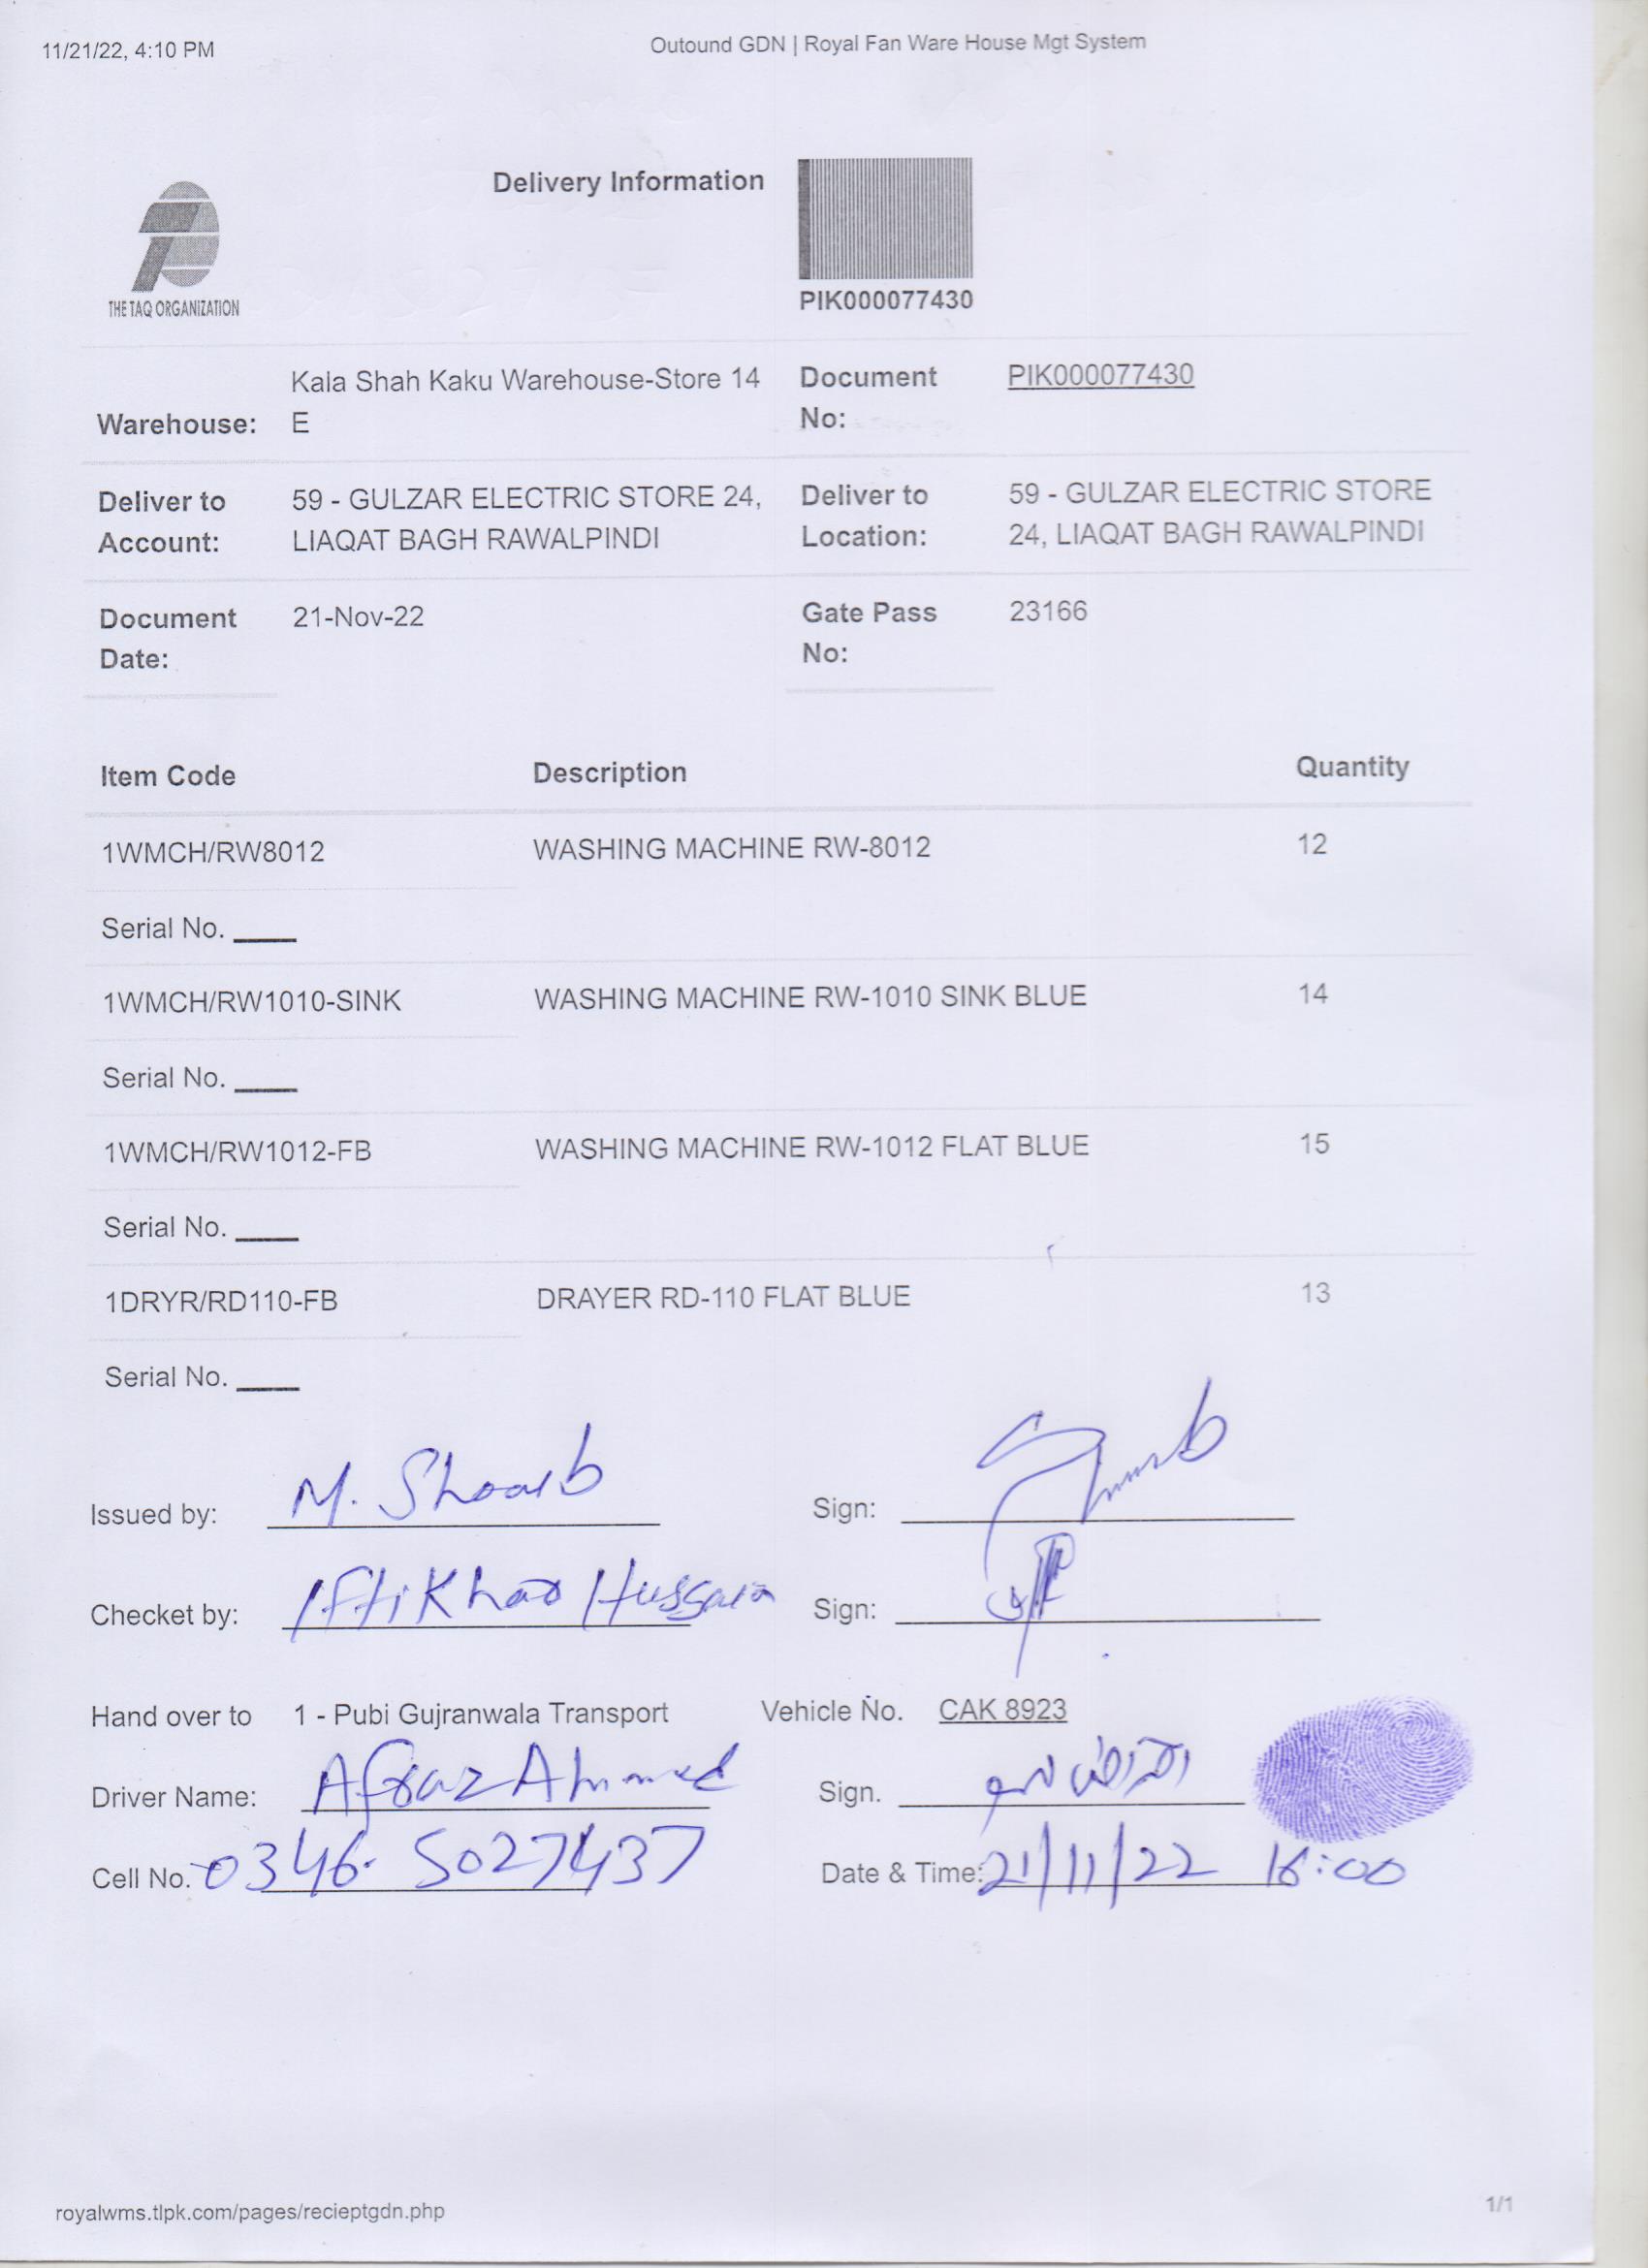 11/21/22, 4:10 PM
Outound GDN | Royal Fan Ware House Mgt System
Delivery Information
THE TAQ ORGANIZATION
PIK000077430
Warehouse: Kala Shah Kaku Warehouse-Store 14 E
Document No: PIK000077430
Deliver to Account: 59 - GULZAR ELECTRIC STORE 24, LIAQAT BAGH RAWALPINDI
Deliver to Location: 59 - GULZAR ELECTRIC STORE 24, LIAQAT BAGH RAWALPINDI
Document Date: 21-Nov-22
Gate Pass No: 23166
Item Code Description Quantity
1WMCH/RW8012 WASHING MACHINE RW-8012 12
Serial No. ____
1WMCH/RW1010-SINK WASHING MACHINE RW-1010 SINK BLUE 14
Serial No. ____
1WMCH/RW1012-FB WASHING MACHINE RW-1012 FLAT BLUE 15
Serial No. ____
1DRYR/RD110-FB DRAYER RD-110 FLAT BLUE 13
Serial No. ____
Issued by: M. Shoaib Sign:
Checket by: Iftikhar Hussain Sign:
Hand over to 1 - Pubi Gujranwala Transport Vehicle No. CAK 8923
Driver Name: Afraz Ahmed Sign.
Cell No. 0346-5027437 Date & Time: 21/11/22 16:00
royalwms.tlpk.com/pages/recieptgdn.php 1/1